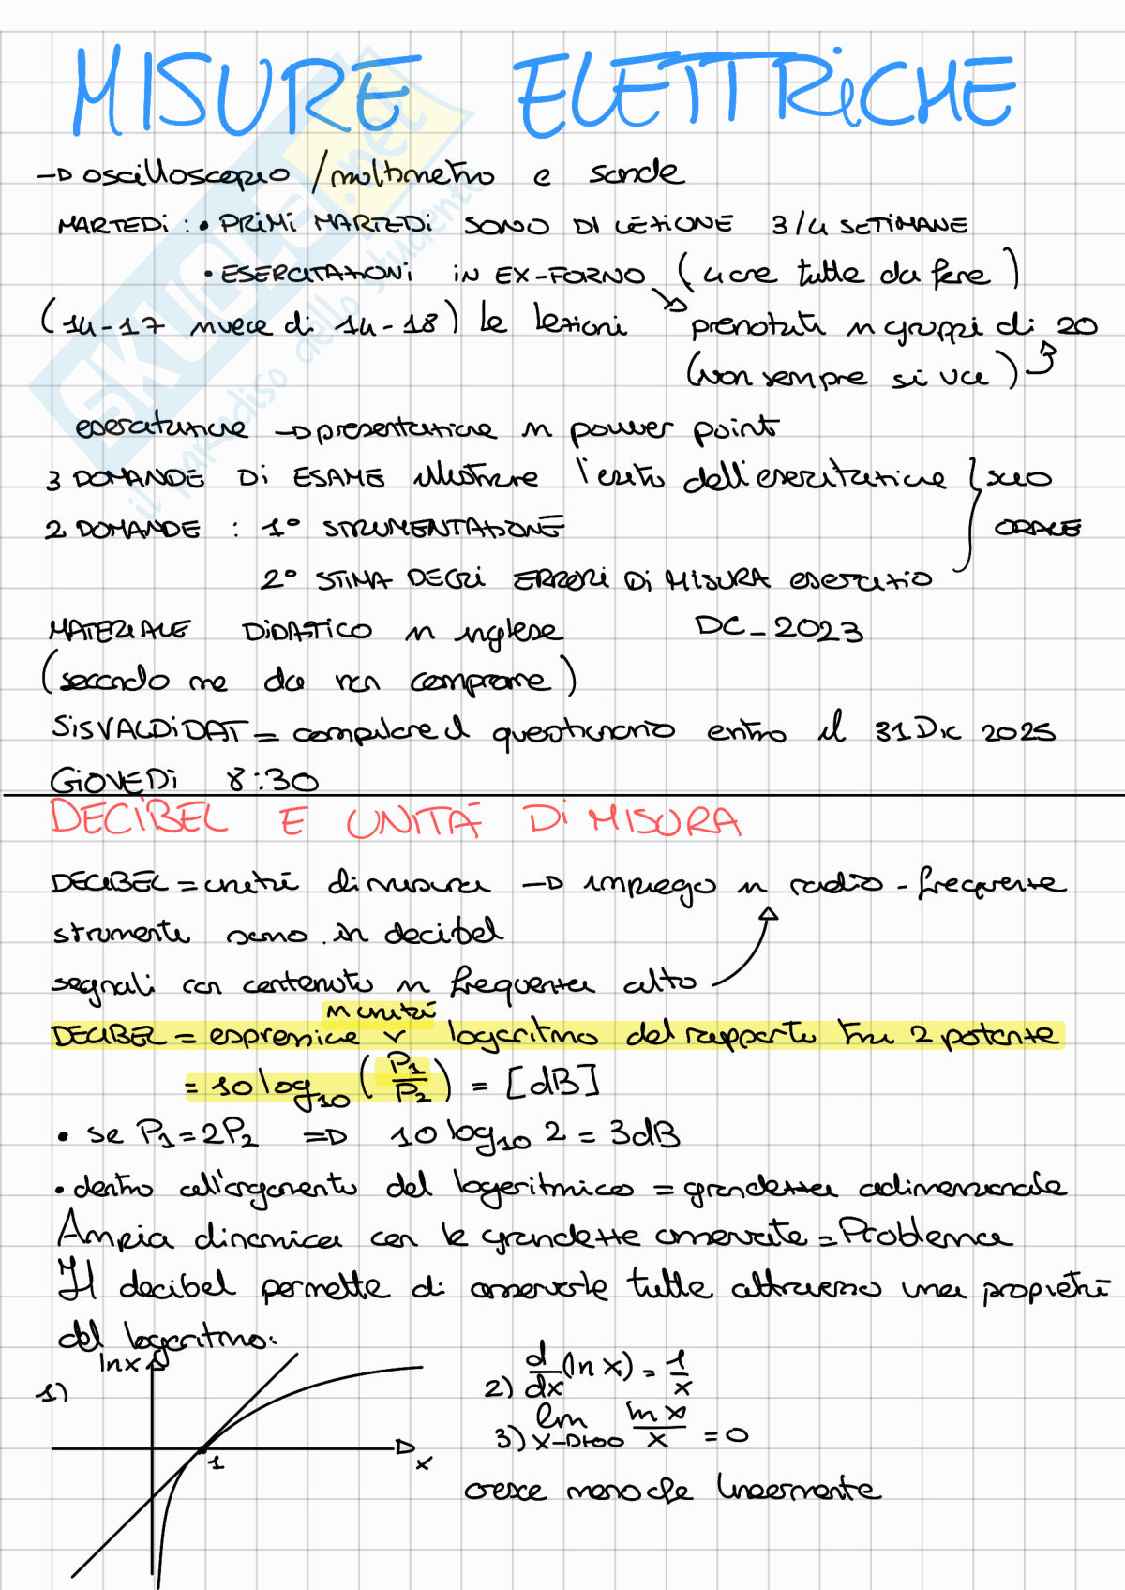 MISURE ELETTRICHE
→ oscilloscopio / multimetro e sonde
MARTEDì : • PRIMI MARTEDì SONO DI LEZIONE 3/4 SETIMANE
• ESERCITAZIONI IN EX-FORNO (4 ore tutte da fare)
(14-17 invece di 14-18) le lezioni prenotati in gruppi di 20
(non sempre si va)
esercitazione → presentazione in power point
3 DOMANDE DI ESAME illustrare l'esito dell'esercitazione } solo
2 DOMANDE : 1° STRUMENTAZIONE ORALE
2° STIMA DEGLI ERRORI DI MISURA esercizio
MATERIALE DIDATICO in inglese DC_2023
(secondo me da non comprare)
SISVALDIDAT = compilare il questionario entro il 31 Dic 2025
GIOVEDì 8:30
DECIBEL E UNITÀ DI MISURA
DECIBEL = unità di misura → impiego in radio-frequenze
strumenti sono in decibel
segnali con contenuto in frequenza alto
in unità
DECIBEL = espressione v logaritmo del rapporto tra 2 potenze
= 10 log₁₀ (P₁/P₂) = [dB]
• se P₁=2P₂ ⇒ 10 log₁₀ 2 = 3dB
• dentro all'argomento del logaritmico = grandezza adimensionale
Ampia dinamica con le grandezze osservate = Problema
Il decibel permette di osservarle tutte attraverso una proprietà
del logaritmo:
ln x
1) 1 x
2) d/dx (ln x) = 1/x
3) lim x→+∞ ln x/x = 0
cresce meno che linearmente
SKUOLA.net
il paradiso dello studente